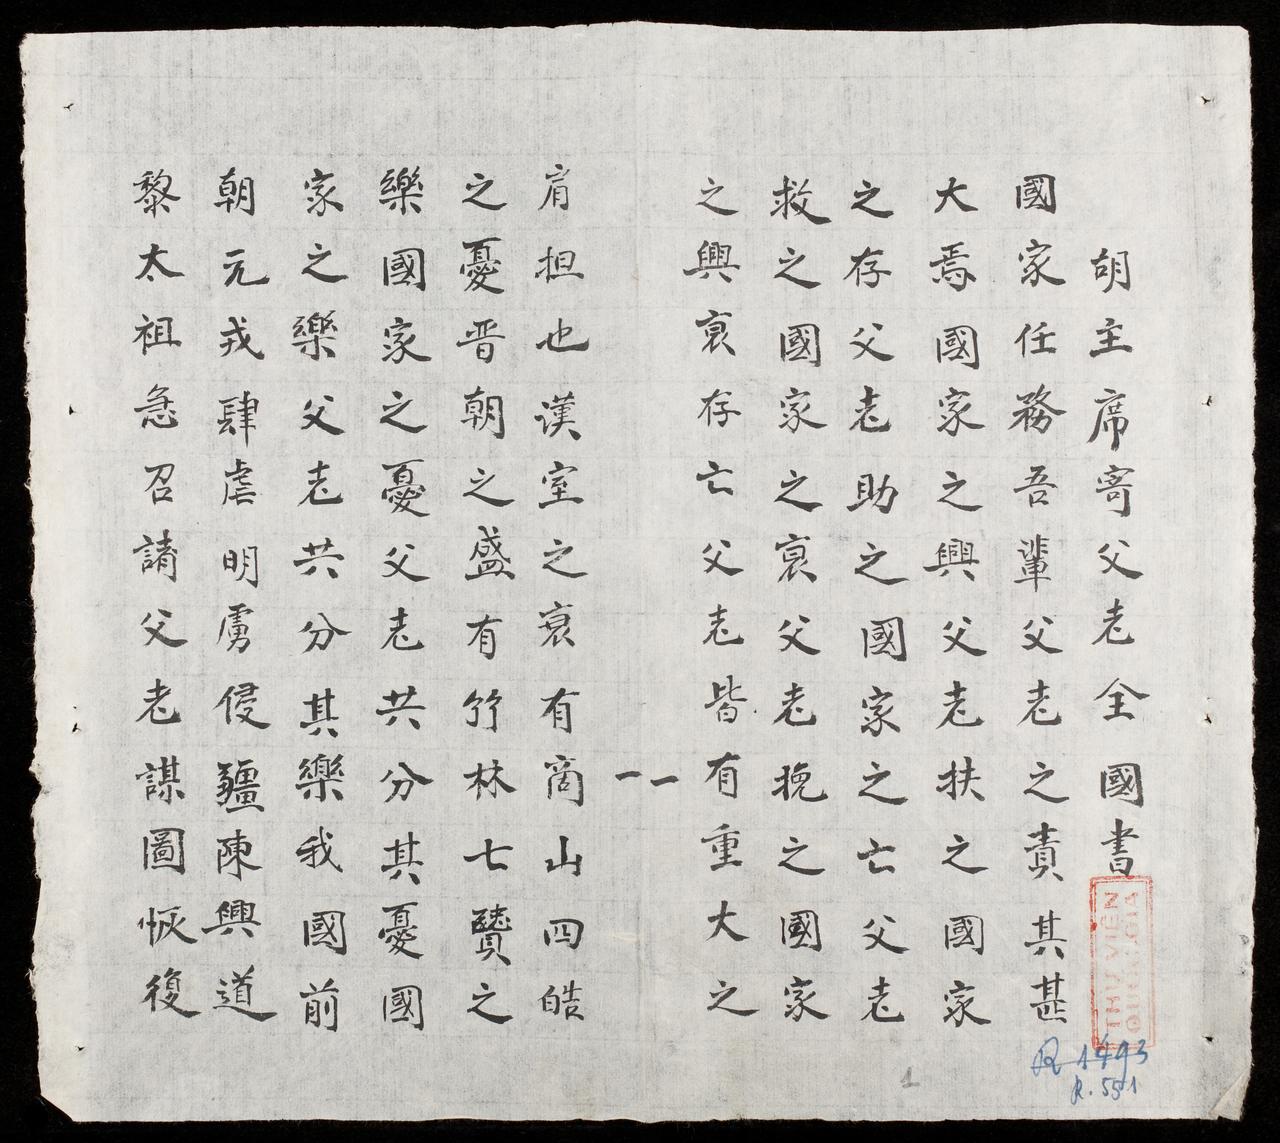 胡主席寄父老全國書
國家任務吾輩父老之責其甚
大焉國家之興父老扶之國家
之存父老助之國家之亡父老
救之國家之衰父老挽之國家
之興衰存亡父老皆有重大之
一一
肩担也漢室之衰有商山四皓
之憂晋朝之盛有竹林七賢之
樂國家之憂父老共分其憂國
家之樂父老共分其樂我國前
朝元戎肆虐明虜侵疆陳興道
黎太祖急召請父老謀圖恢復
THƯ VIỆN
QUỐC GIA
R 1493
R. 551
1